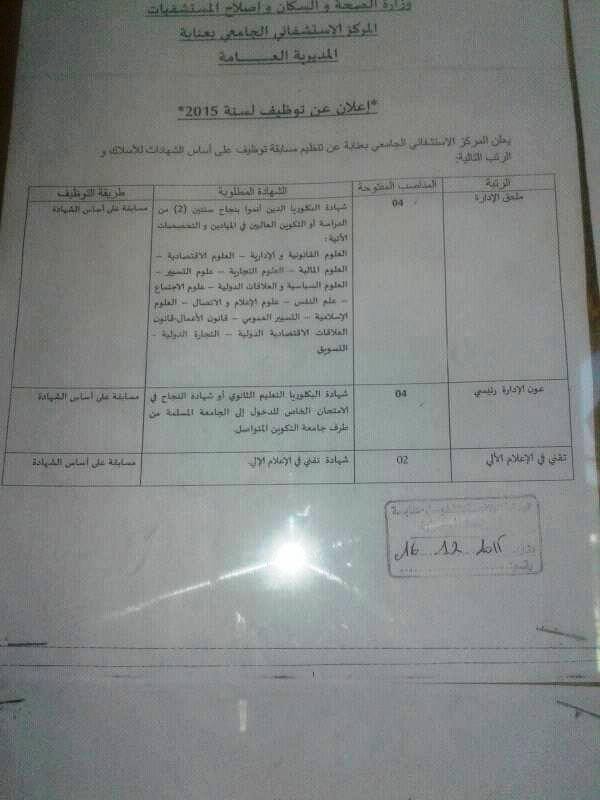 وزارة الصحة و السكان و إصلاح المستشفيات
المركز الإستشفائي الجامعي بعنابة
المديرية العــــــامة
*إعلان عن توظيف لسنة 2015*
يعلن المركز الاستشفائي الجامعي بعنابة عن تنظيم مسابقة توظيف على أساس الشهادات للأسلاك و
الرتب التالية:
الرتبة المناصب المفتوحة الشهادة المطلوبة طريقة التوظيف
ملحق الإدارة 04 شهادة البكلوريا الذين أتموا بنجاح سنتين (2) من مسابقة على أساس الشهادة
الدراسة أو التكوين العاليين في الميادين و التخصصات
الأتية :
العلوم القانونية و الإدارية – العلوم الاقتصادية –
العلوم المالية – العلوم التجارية – علوم التسيير –
العلوم السياسية و العلاقات الدولية – علوم الاجتماع
– علم النفس – علوم الإعلام و الاتصال – العلوم
الإسلامية – التسيير العمومي – قانون الأعمال-قانون
العلاقات الاقتصادية الدولية – التجارة الدولية -
التسويق
عون الإدارة رئيسي 04 شهادة البكلوريا التعليم الثانوي أو شهادة النجاح في مسابقة على أساس الشهادة
الامتحان الخاص للدخول إلى الجامعة المسلمة من
طرف جامعة التكوين المتواصل.
تقني في الإعلام الألي 02 شهادة تقني في الإعلام الإلي. مسابقة على أساس الشهادة
16 12 2015
1